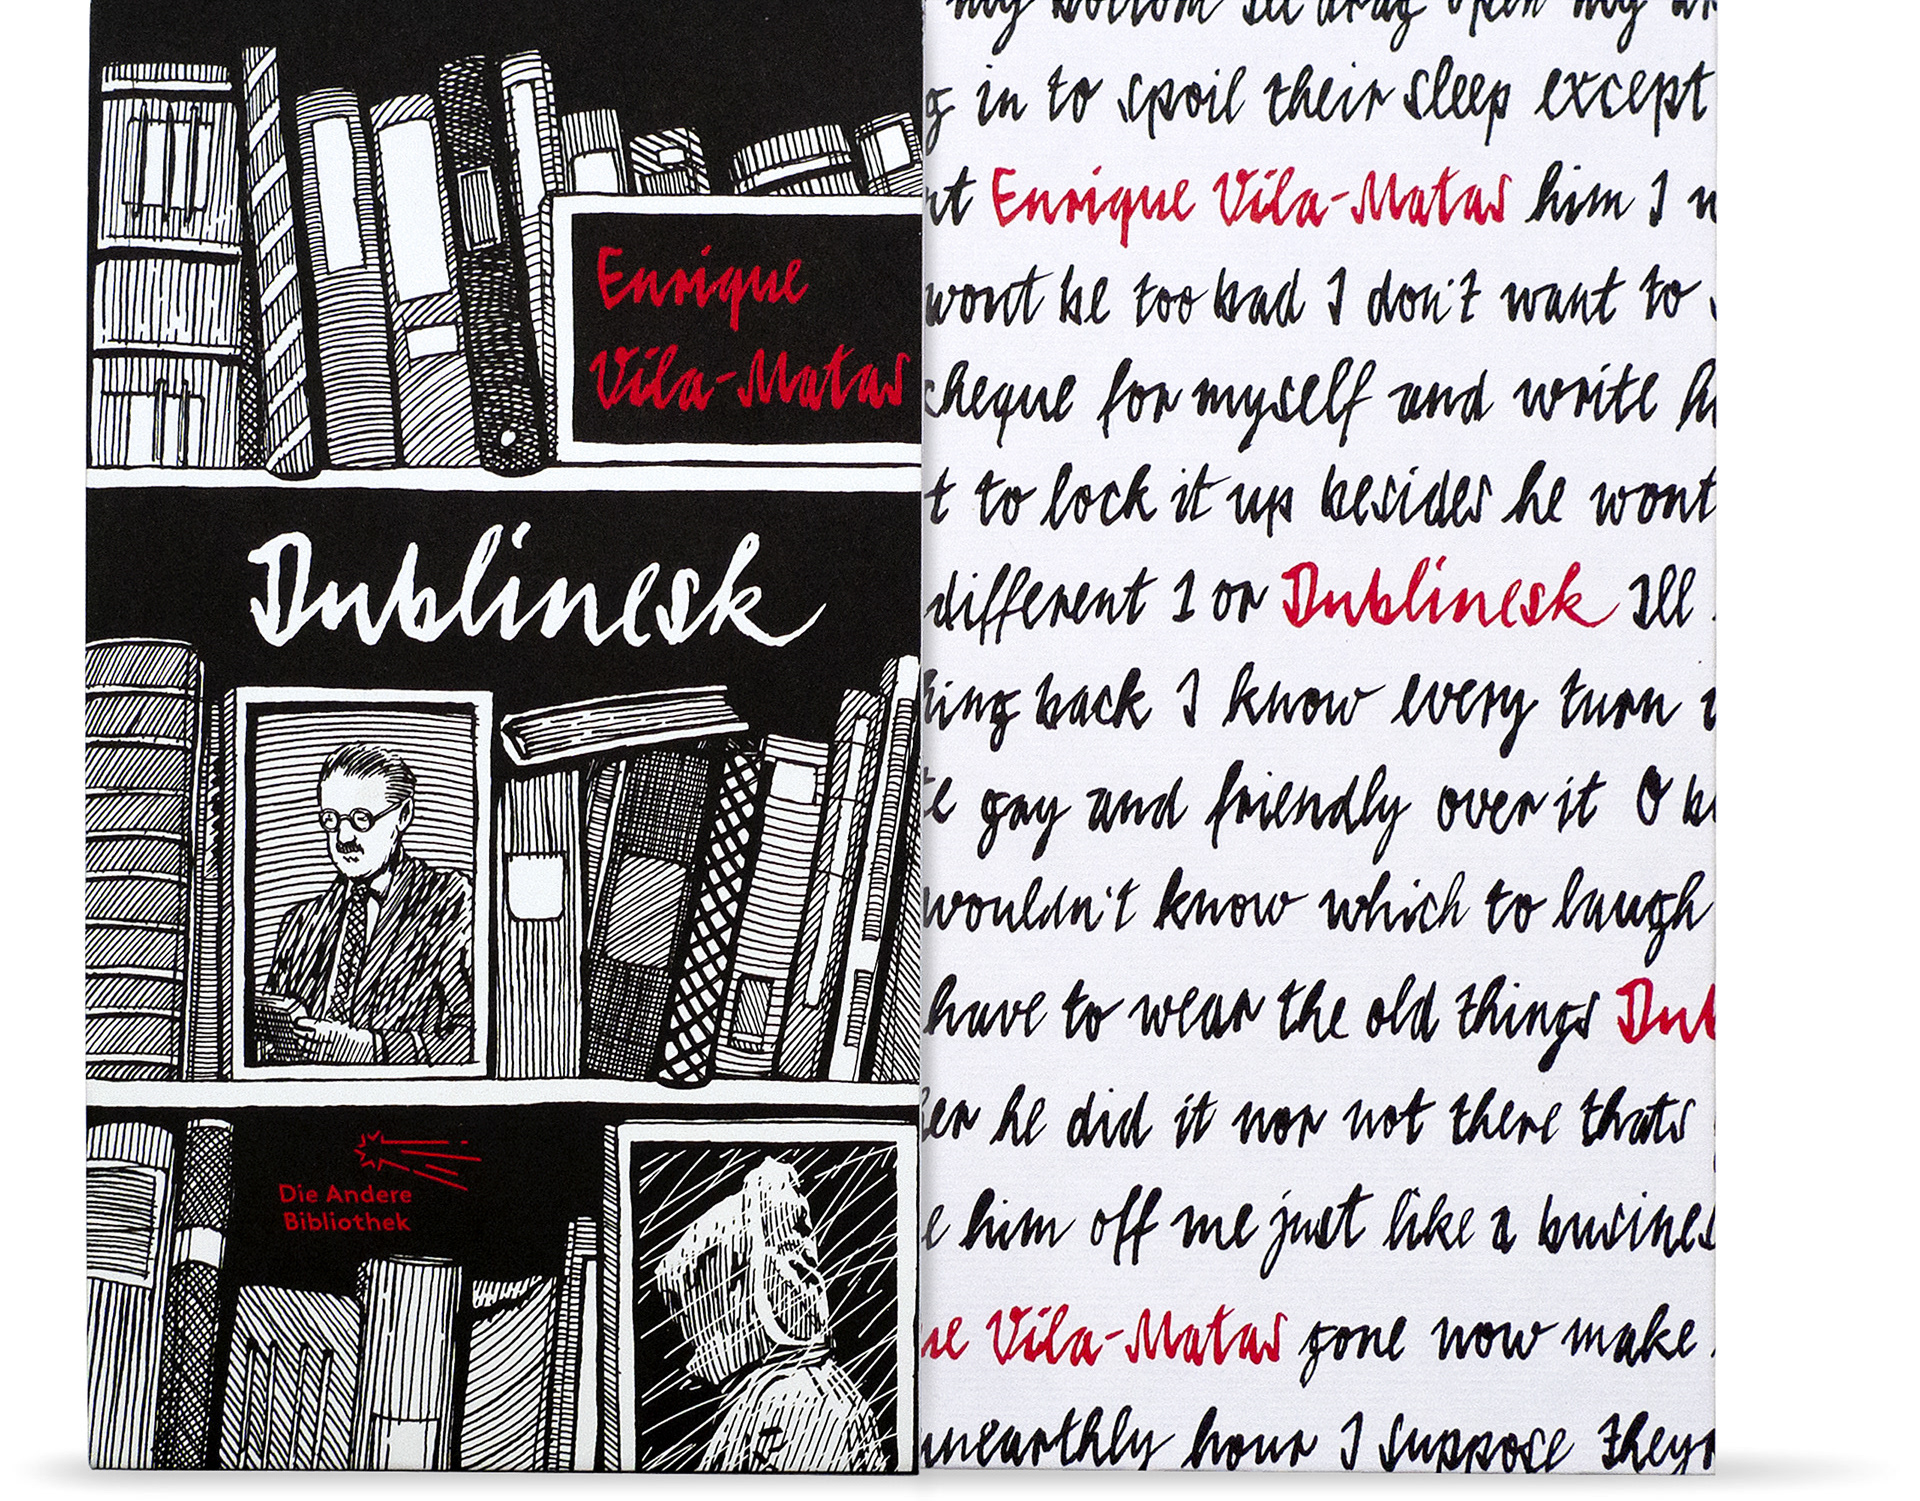 Enrique
Vila-Matas
Dublinesk
Die Andere
Bibliothek
my bottom Ill drag open my
in to spoil their sleep except
Enrique Vila-Matas him I
wont be too bad I don't want to
cheque for myself and write
to lock it up besides he wont
different I or Dublinesk Ill
back I know every turn
gay and friendly over it O
wouldn't know which to laugh
have to wear the old things Dub
he did it nor not there thats
him off me just like a busines
Vila-Matas gone now make
unearthly hour I suppose theyr